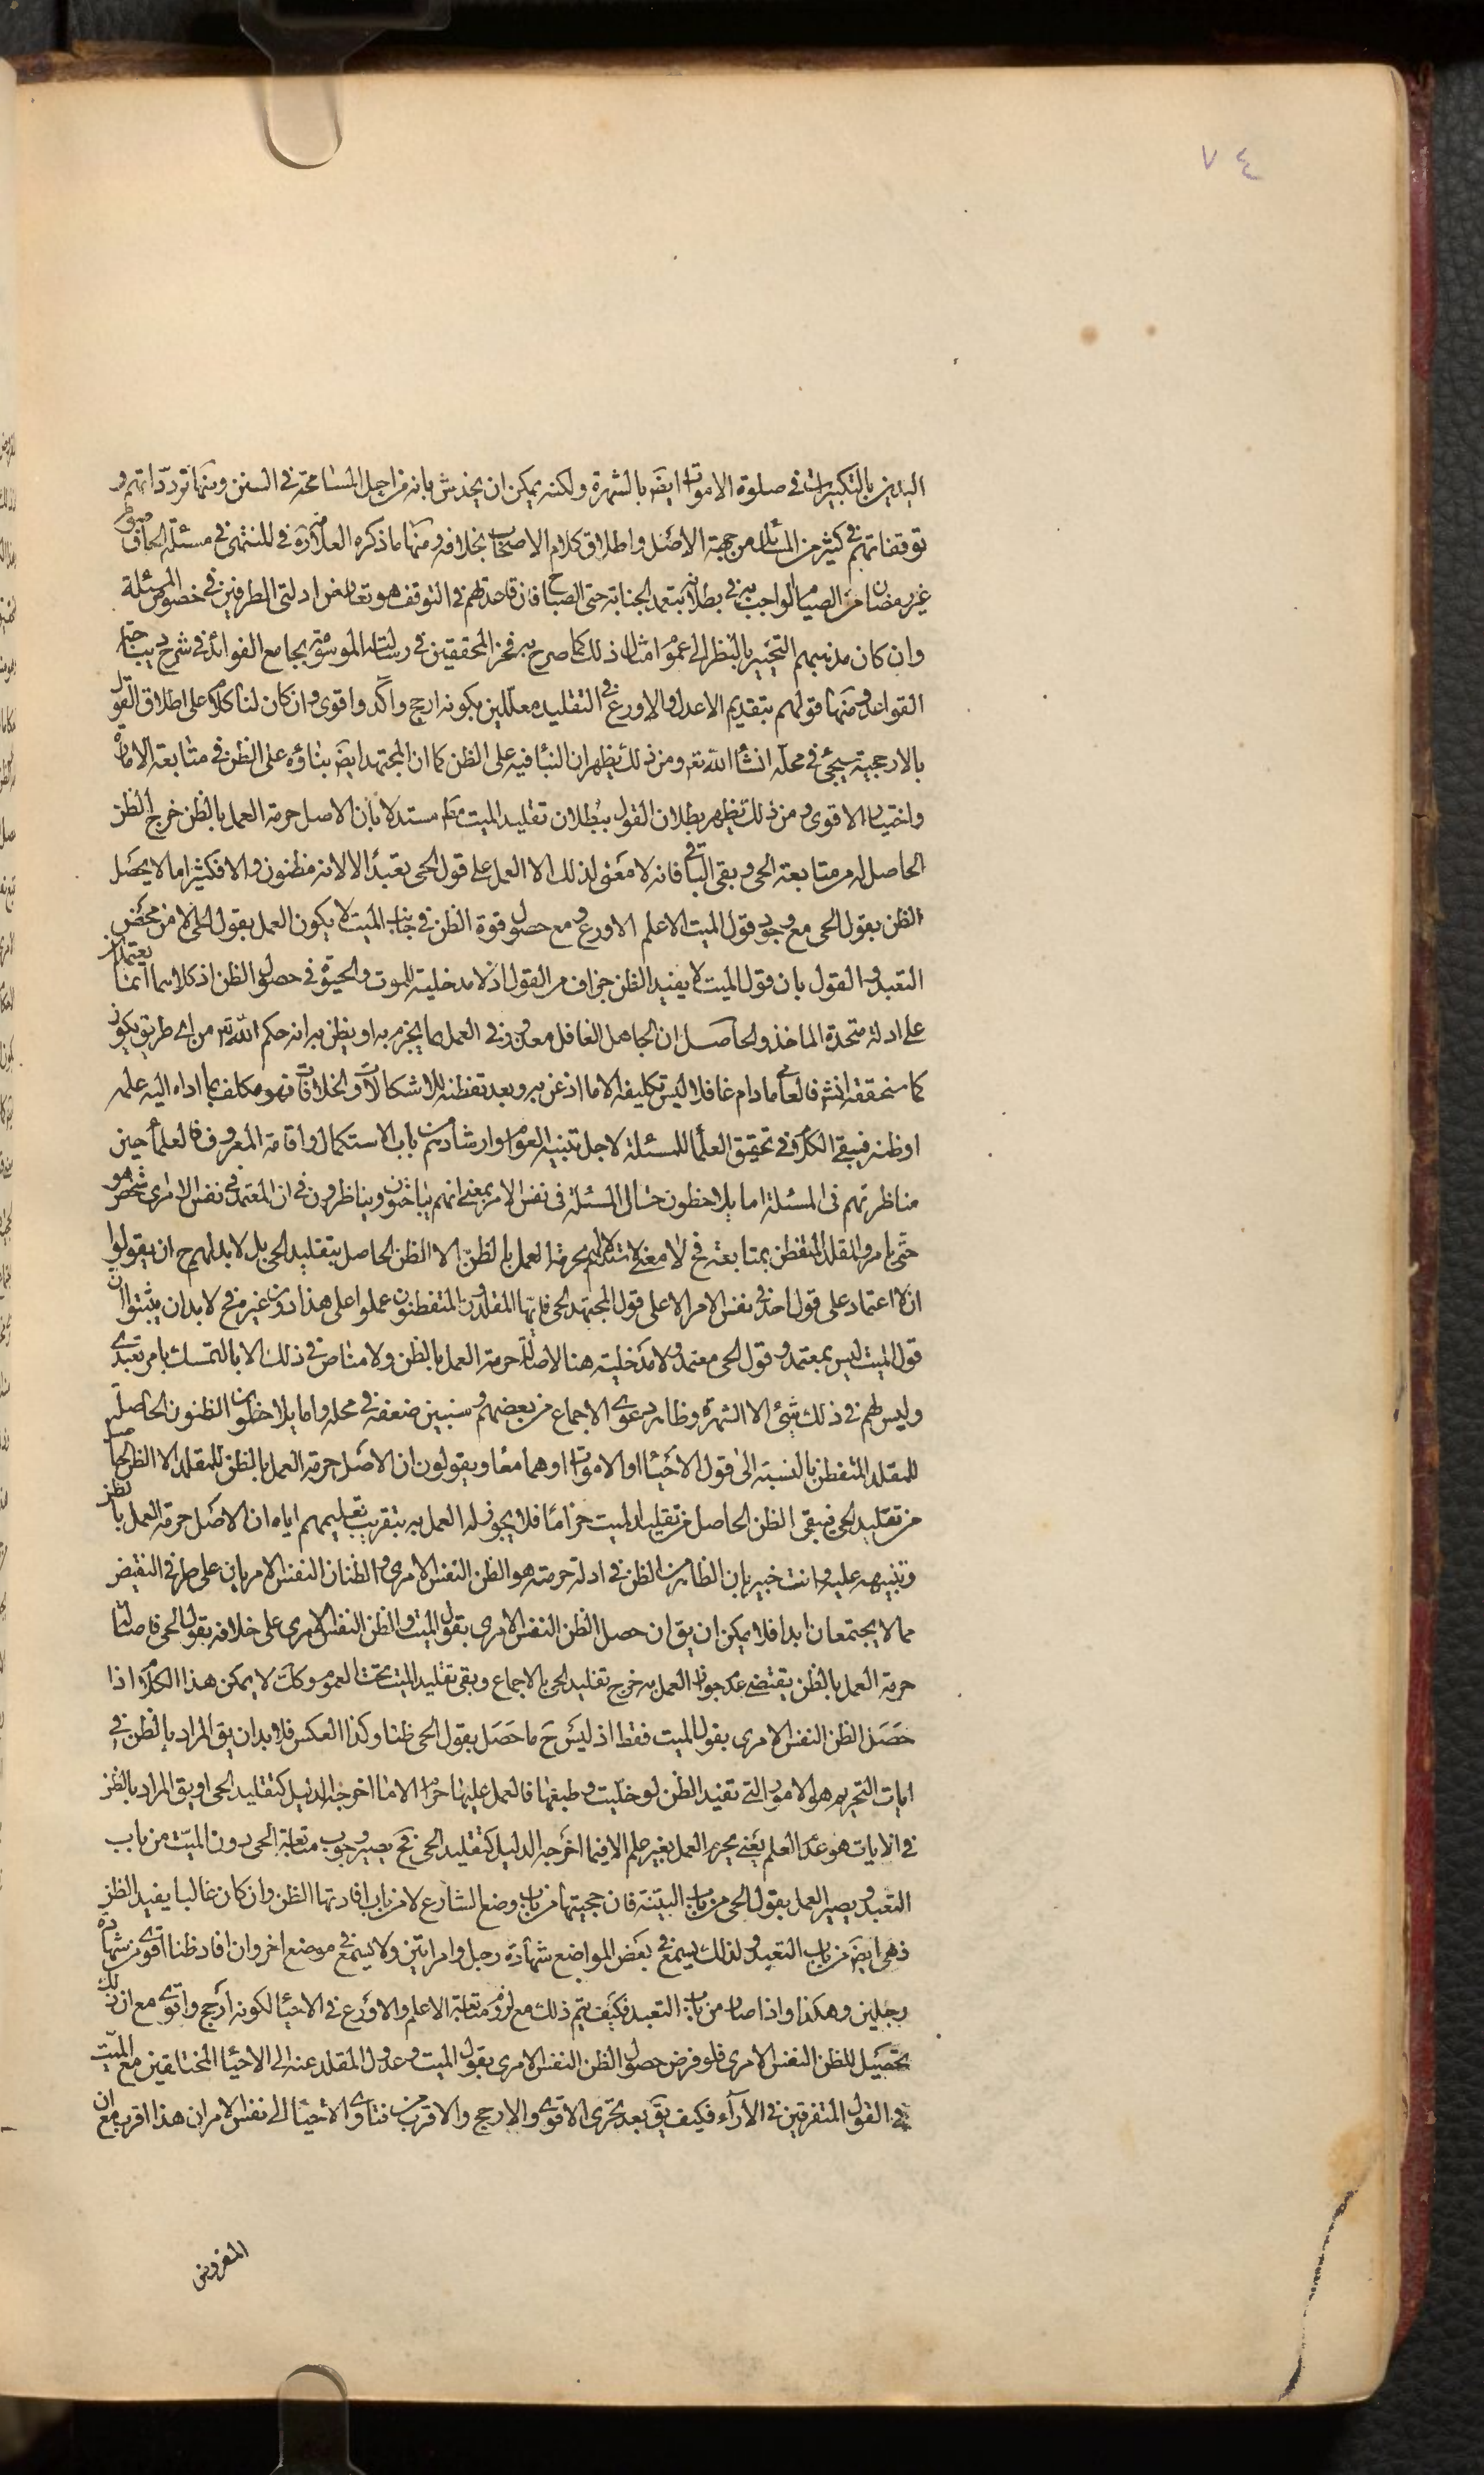 ٧٤
اليدين بالتكبيرات في صلوة الاموات ايضَ بالشهرة ولكنه يمكن ان يخدش بانه من اجل المسامحة في السنن ومنها تردداتهم و
توقفاتهم في كثير من المسائل من جهة الاصل واطلاق كلام الاصحاب بخلافه ومنها ما ذكره العلامة ره في المنتهى في مسئلة الحاق صوم
غير رمضان من الصيام الواجب به في بطلانه بتعمد الجنابة حتى الصباح فان قاعدتهم في التوقف هو تعارض ادلتى الطرفين في خصوص المسئلة
وان كان مذهبهم التخيير بالنظر الى عموم امثال ذلك كما صرح به فخر المحققين في رسالته الموسومة بجامع الفوائد في شرح ديباجة
القواعد ومنها قولهم بتقديم الاعدل والاورع في التقليد معللين بكونه ارجح وآكد واقوى وان كان لنا كلام على اطلاق القول
بالارجحية سيجئ في محله انشأ الله تعَ ومن ذلك يظهر ان البنأ فيه على الظن كما ان المجتهد ايضَ بناؤه على الظن في متابعة الامارة
واختيار الاقوى ومن ذلك يظهر بطلان القول ببطلان تقليد الميت مطَ مستدلا بان الاصل حرمة العمل بالظن خرج الظن
الحاصل له من متابعة الحى وبقى الباقى فانه لا معنى لذلك الا العمل على قول الحى تعبدا لا لانه مظنون والا فكثيرا ما لا يحصل
الظن بقول الحى مع وجود قول الميت الاعلم الاورع ومع حصول قوة الظن في جانب الميت لا يكون العمل بقول الحى الا من محض
التعبد والقول بان قول الميت لا يفيد الظن جزاف من القول اذ لا مدخلية للموت والحيوة في حصول الظن اذ كلاهما انما يعتمدان
على ادلة متحدة الماخذ والحاصل ان الجاهل الغافل معذور في العمل بما يجزم به او يظن به انه حكم الله تعَ من اى طريق يكون
كما سنحققه انشَ فالعامى مادام غافلا ليس تكليفه الا ما اذعن به وبعد تفطنه للاشكالات والخلافات فهو مكلف بما اداه اليه علمه
او ظنه فيبقى الكلام في تحقيق العلمأ للمسئلة لاجل تنبيه العوام وارشادهم من باب الاستكمال واقامة المعروف فالعلمأ حين
مناظرتهم في المسئلة اما يلاحظون حال المسئلة في نفس الامر بمعنى انهم يتباحثون ويناظرون في ان المعتمد في نفس الامر اى شخص هو
حتى يامروا المقلد المتفطن بمتابعته فح لا معنى لاستدلالهم بحرمة العمل بالظن الا الظن الحاصل بتقليد الحى بل لا بد لهم ح ان يقولوا
ان لا اعتماد على قول احد في نفس الامر الا على قول المجتهد الحى فايها المقلدون المتفطنون عملوا على هذا دون غيره فح لا بد ان يثبتوا ان
قول الميت ليس بمعتمد وقول الحى معتمد ولا مدخلية هنا لاصالة حرمة العمل بالظن ولا مناص في ذلك الا بالتمسك بامر تعبدى
وليس لهم في ذلك شئ الا الشهرة وظاهر دعوى الاجماع من بعضهم وسنبين ضعفه في محله واما يلاحظون الظنون الحاصلة
للمقلد المتفطن بالنسبة الى قول الاحيأ او الاموات او هما معا ويقولون ان الاصل حرمة العمل بالظن للمقلد الا الظن الحاصل
من تقليد الحى فيبقى الظن الحاصل من تقليد الميت حراما فلا يجوز له العمل به بتقريب تعليمهم اياه ان الاصل حرمة العمل بالظن
وتنبيهه عليه وانت خبير بان الظاهر من الظن في ادلة حرمته هو الظن النفس الامرى والظنان النفس الامريان على طرفى النقيض
مما لا يجتمعان ابدا فلا يمكن ان يق ان حصل الظن النفس الامرى بقول الميت والظن النفس الامرى على خلافه بقول الحى فاصالة
حرمة العمل بالظن يقتضى عدم جواز العمل به خرج تقليد الحى بالاجماع وبقى تقليد الميت تحت العموم وكك لا يمكن هذا الكلام اذا
حصل الظن النفس الامرى بقول الميت فقط اذ ليس ح ما حصل بقول الحى ظنا وكذا العكس فلا بد ان يق المراد بالظن في
ايات التحريم هو الامور التى تفيد الظن لو خليت وطبعها فالعمل عليها حرام الا ما اخرجه الدليل كتقليد الحى او يق المراد بالظن
في الايات هو عدم العلم يعنى يحرم العمل بغير علم الا فيما اخرجه الدليل كتقليد الحى فح يصير وجوب متابعة الحى دون الميت من باب
التعبد ويصير العمل بقول الحى من باب البينة فان حجيتها من باب وضع الشارع لا من باب افادتها الظن وان كان غالبا يفيد الظن
فهى ايضَ من باب التعبد ولذلك يسمع في بعض المواضع شهادة رجل وامراتين ولا يسمع في موضع اخر وان افاد ظنا اقوى من شهادة
رجلين وهكذا واذا صار من باب التعبد فكيف يتم ذلك مع لزوم متابعة الاعلم والاورع في الاحيأ لكونه ارجح واقوى مع ان ذلك
تحصيل للظن النفس الامرى فلو فرض حصول الظن النفس الامرى بقول الميت وعدول المقلد عنه الى الاحيأ المخالفين مع الميت
في القول المتفرقين في الآرآء فكيف يق بعد تحرى الاقوى والارجح والاقرب من فتاوى الاحيأ الى نفس الامر ان هذا اقرب مع ان
المفروض